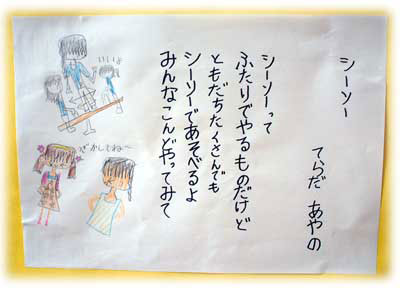 シーソー
てらだ あやの
シーソーって
ふたりでやるものだけど
ともだちたくさんでも
シーソーであそべるよ
みんなこんどやってみて
いいよ